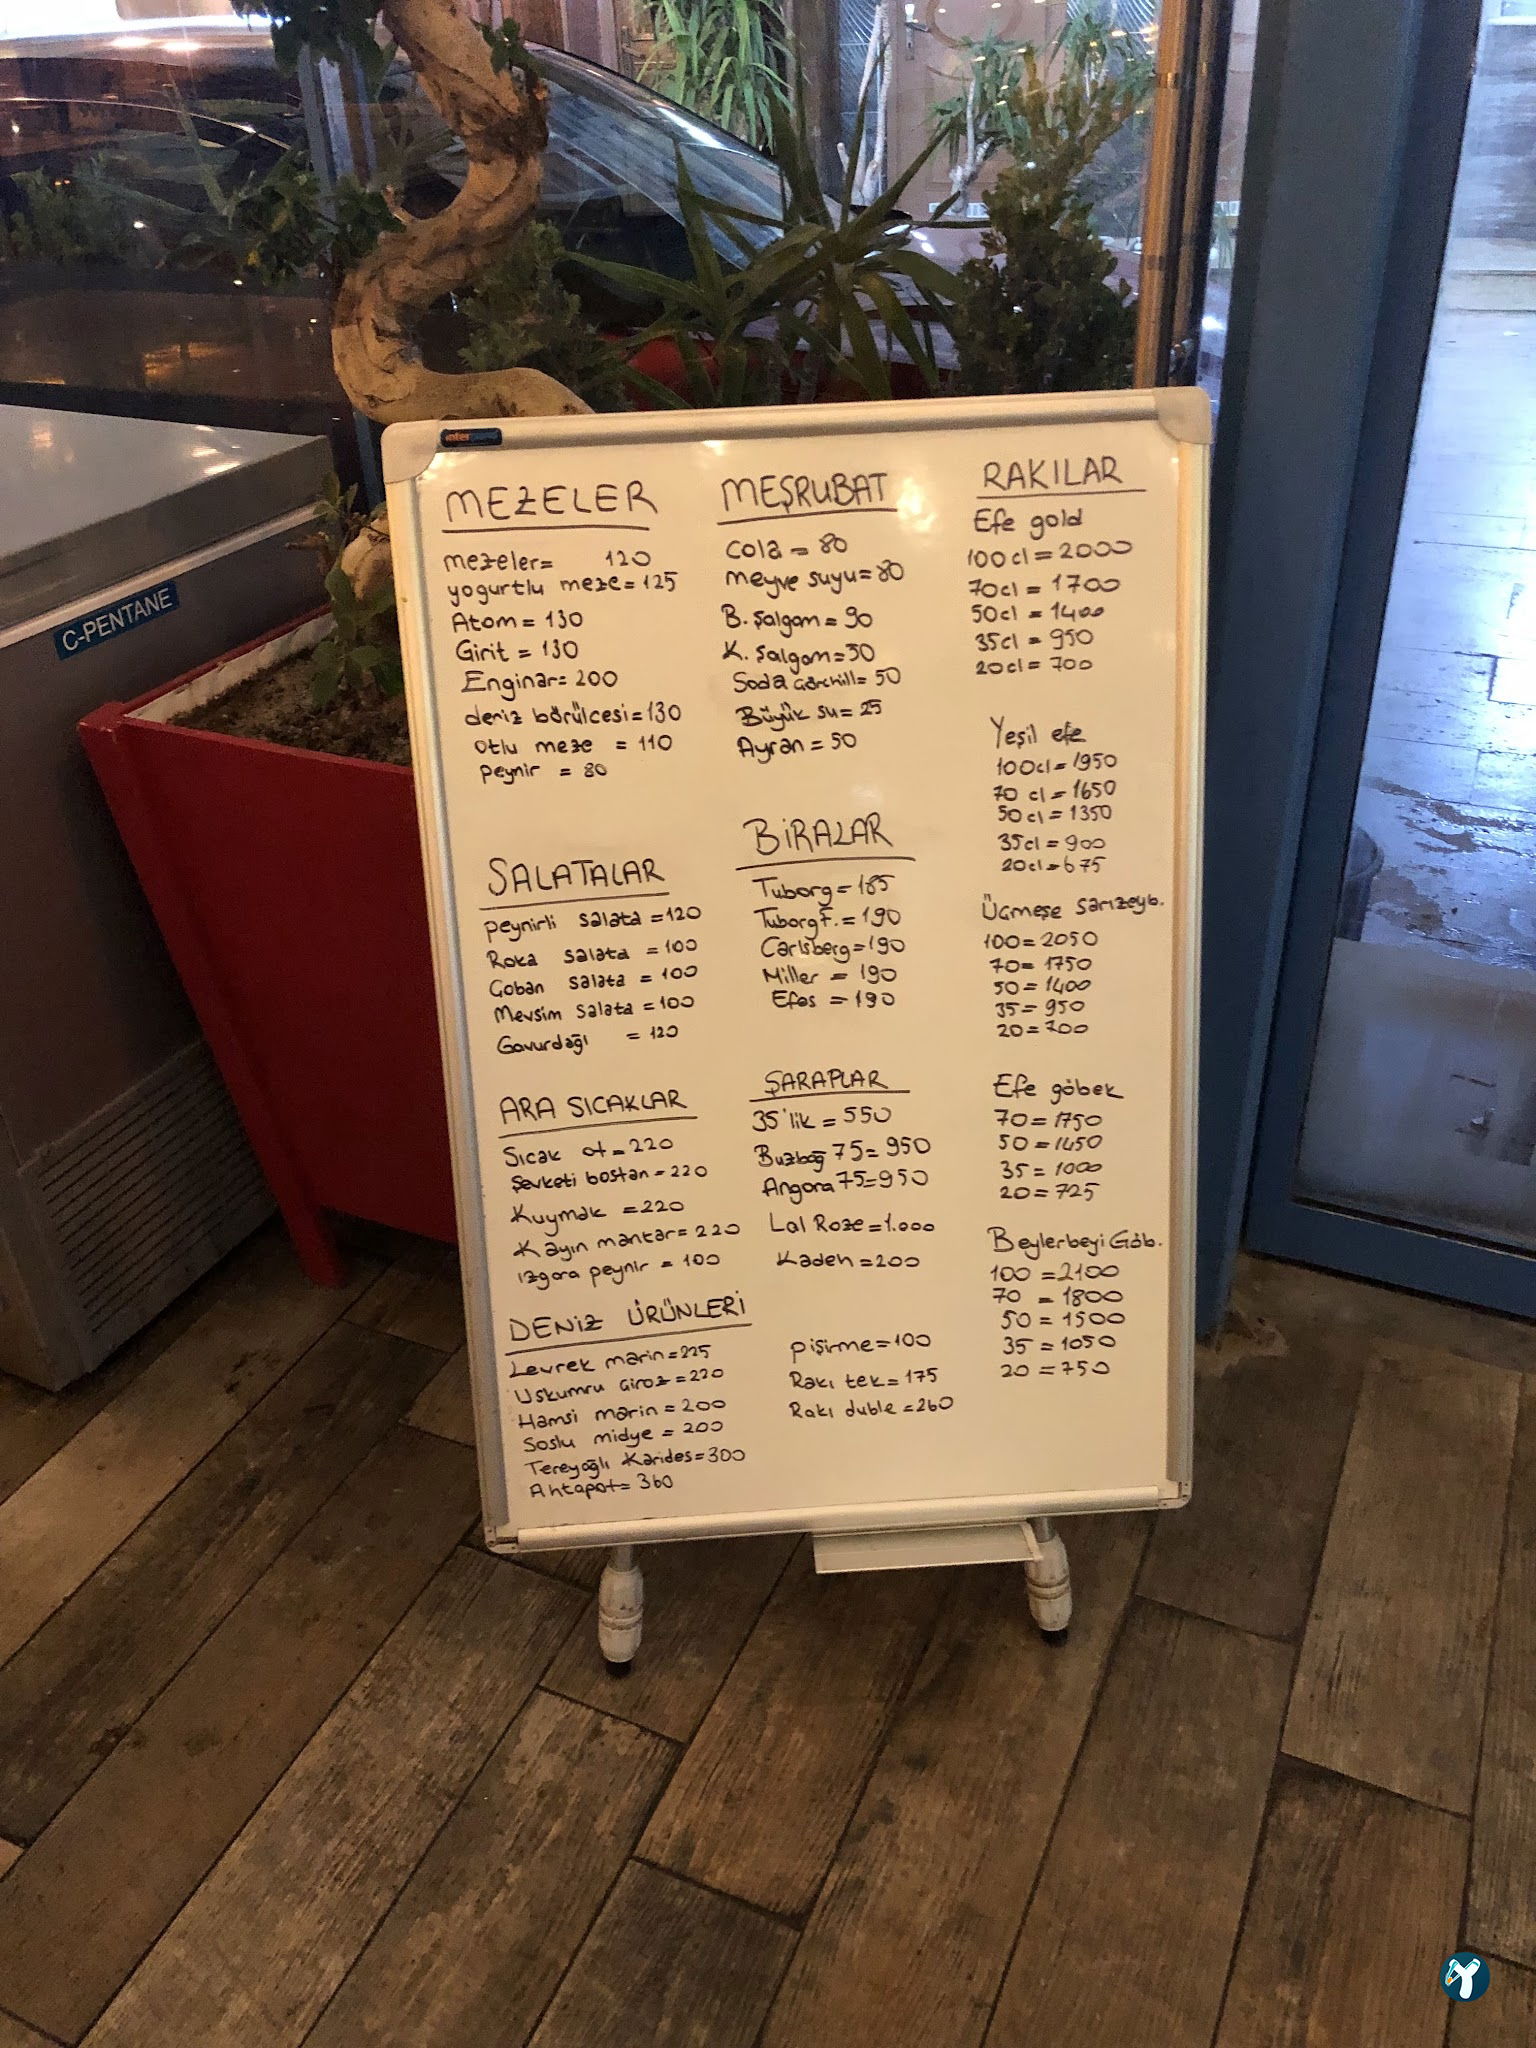 C-PENTANE
inter
MEZELER
mezeler= 120
yogurtlu meze=125
Atom=130
Girit=130
Enginar=200
deniz börülcesi=130
otlu meze =110
peynir = 80
SALATALAR
peynirli salata =120
Roka salata =100
Goban salata =100
Mevsim salata =100
Gavurdağı =120
ARA SICAKLAR
Sıcak ot=220
şevketi bostan=220
Kuymak =220
Kayın mantar=220
ızgara peynir =100
DENİZ ÜRÜNLERİ
Levrek marin=225
Uskumru Giroz=220
Hamsi marin=200
Soslu midye=200
Tereyağlı Karides=300
Ahtapot=360
MEŞRUBAT
Cola = 80
meyve suyu=80
B. Şalgam=90
K. Şalgam=50
Soda =50
Büyük su=25
Ayran=50
BİRALAR
Tuborg=185
Tuborg F.=190
Carlsberg=190
Miller =190
Efes =190
ŞARAPLAR
35'lik=550
Buzbağ 75=950
Angora 75=950
Lal Roze=1.000
Kadeh=200
pişirme=100
Rakı tek=175
Rakı duble=260
RAKILAR
Efe gold
100cl=2000
70cl=1700
50cl=1400
35cl=950
20cl=700
Yeşil efe
100cl=1950
70 cl=1650
50cl=1350
35cl=900
20cl=675
Üçmeşe sarızeyb.
100=2050
70=1750
50=1400
35=950
20=700
Efe göbek
70=1750
50=1450
35=1000
20=725
Beylerbeyi Göb.
100=2100
70 =1800
50=1500
35=1050
20=750